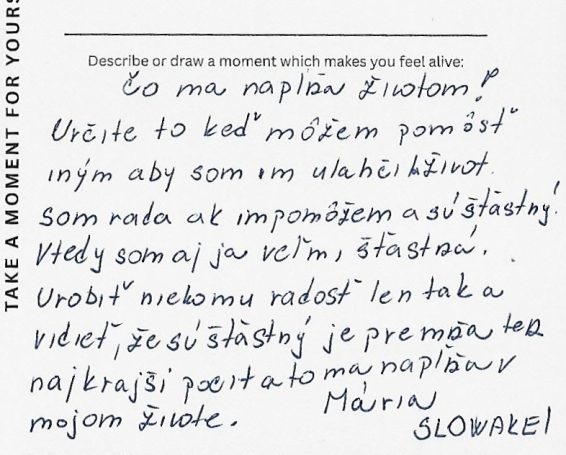 TAKE A MOMENT FOR YOURS
Describe or draw a moment which makes you feel alive:
Čo ma naplňa životom?
Určite to keď môžem pomôsť
iným aby som im ulahčila život.
Som rada ak im pomôžem a sú šťastný!
Vtedy som aj ja veľmi šťastná.
Urobiť niekomu radosť len tak a
vidieť, že sú šťastný je pre mňa ten
najkrajší pocit a to ma naplňa v
mojom živote.
Mária
SLOWAKEI